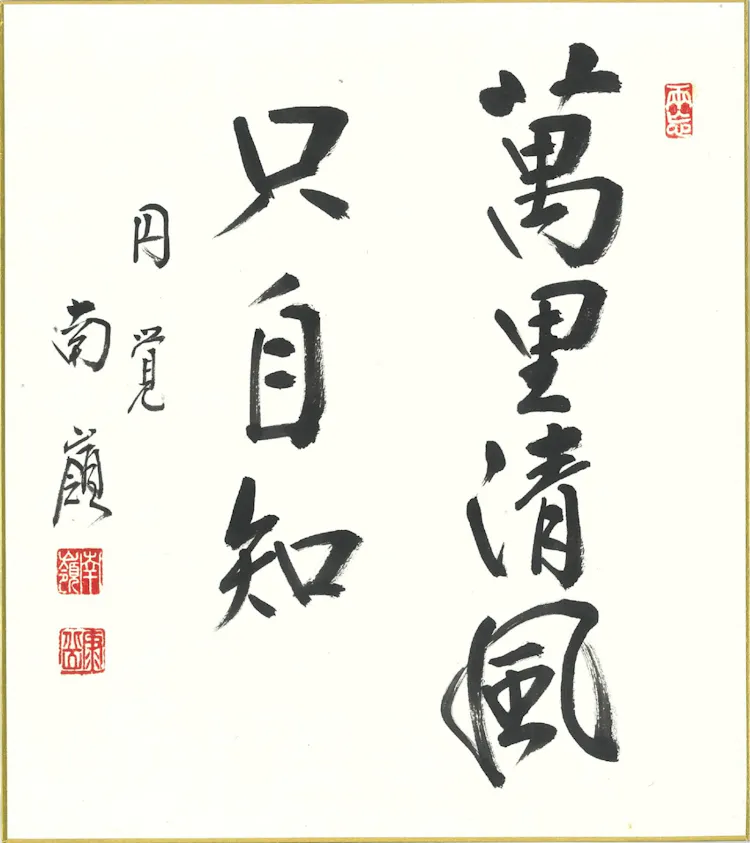 萬里清風
只自知
円覚
南嶺
南嶺